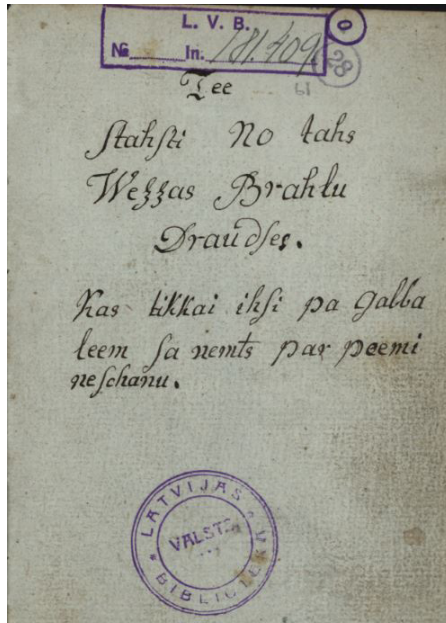 L. V. B.
№ In. 181.409.
0
28
61
Tee
Stahsti No tahs
Wezzas Brahlu
Draudses.
Kas tikkai ihsi pa galba
leem sa nemts par peemi
neschanu.
LATVIJAS
VALSTS
BIBLIOTEKA